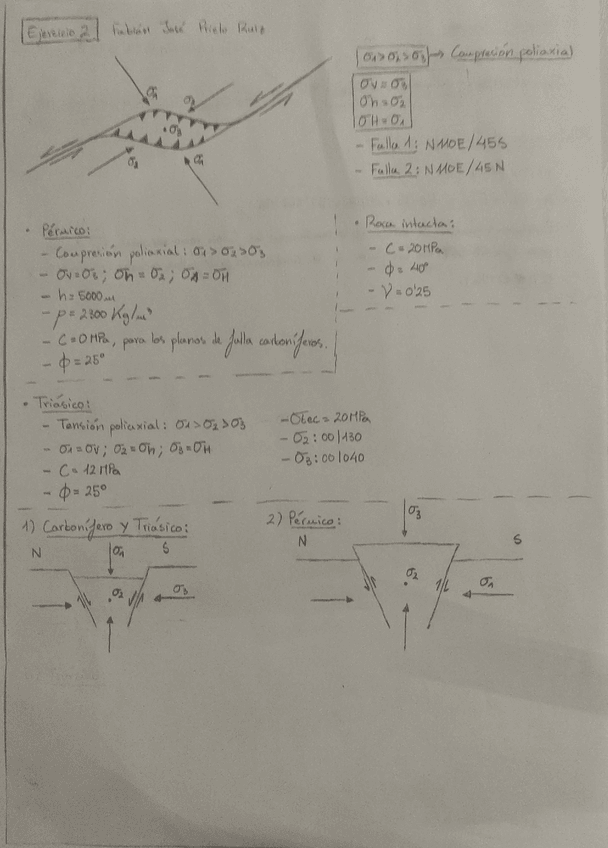 Ejercicio 2 Fabián José Prieto Ruiz
σ1 > σ2 > σ3 → Compresión poliaxial
σv = σ3
σh = σ2
σH = σ1
- Falla 1: N110E/45S
- Falla 2: N110E/45N
σ1
σ2
σ3
σ2
σ1
• Pérmico:
- Compresión poliaxial: σ1 > σ2 > σ3
- σv = σ3; σh = σ2; σ1 = σH
- h = 5000 m
- ρ = 2300 Kg/m³
- C = 0 MPa, para los planos de falla carboníferos.
- ϕ = 25°
• Roca intacta:
- C = 20 MPa
- ϕ = 40°
- ν = 0'25
• Triásico:
- Tensión poliaxial: σ1 > σ2 > σ3
- σ1 = σv; σ2 = σh; σ3 = σH
- C = 12 MPa
- ϕ = 25°
- σtec = 20 MPa
- σ2: 00/130
- σ3: 00/040
1) Carbonífero y Triásico:
N
S
σ1
σ2
σ3
2) Pérmico:
σ3
N
S
σ2
σ1